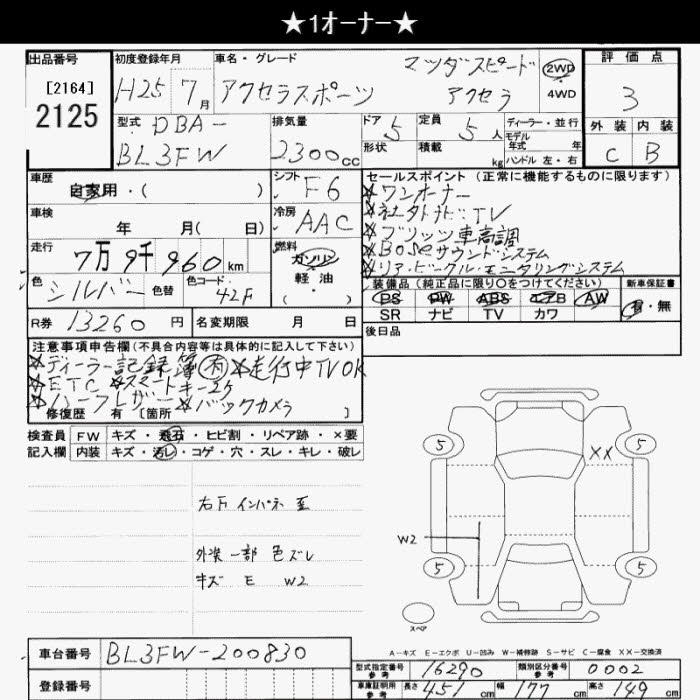 ★1オーナー★
出品番号
[2164]
2125
初度登録年月
H25 7月
車名・グレード
マツダスピード
アクセラスポーツ アクセラ
2WD
・
4WD
評価点
3
外装 内装
C B
型式 DBA-
BL3FW
排気量
2300cc
ドア 5
形状
定員 5 人
積載 kg
ディーラー・並行
モデル
年式 年
ハンドル 左・右
車歴
自家用・( )
シフト F6
車検
年 月( 日)
冷房 AAC
走行
7万9千960km
燃料
ガソリン
・
軽油
( )
色 シルバー 色替
色コード 42F
R券 13260円
名変期限 月 日
セールスポイント(正常に機能するものに限ります)
★ワンオーナー
★社外ナビ:TV
★ブリッツ車高調
★BOSEサウンドシステム
★リア・ビークル・モニタリングシステム
装備品(純正品に限り○をつけてください)
PS PW ABS エアB AW
SR ナビ TV カワ
新車保証書
有・無
後日品
注意事項申告欄(不具合内容等は具体的に記入して下さい)
★ディーラー記録簿有 ★走行中TVOK
★ETC ★スマートキー2ケ
★ハーフレザー ★バックカメラ
修復歴 有 [箇所 ]
検査員
記入欄
FW キズ・飛石・ヒビ割・リペア跡・×要
内装 キズ・汚レ・コゲ・穴・スレ・キレ・破レ
右下 インパネ
外装 一部 色ズレ
キズ E W2
5
5
XX
W2
5
5
スペア
A-キズ E-エクボ U-凹み W-補修跡 S-サビ C-腐食 XX-交換済
車台番号 BL3FW-200830
登録番号
型式指定番号
参考
16290
類別区分番号
参考
0002
車庫証明用
参考
長さ 451cm 幅 177cm 高さ 149cm